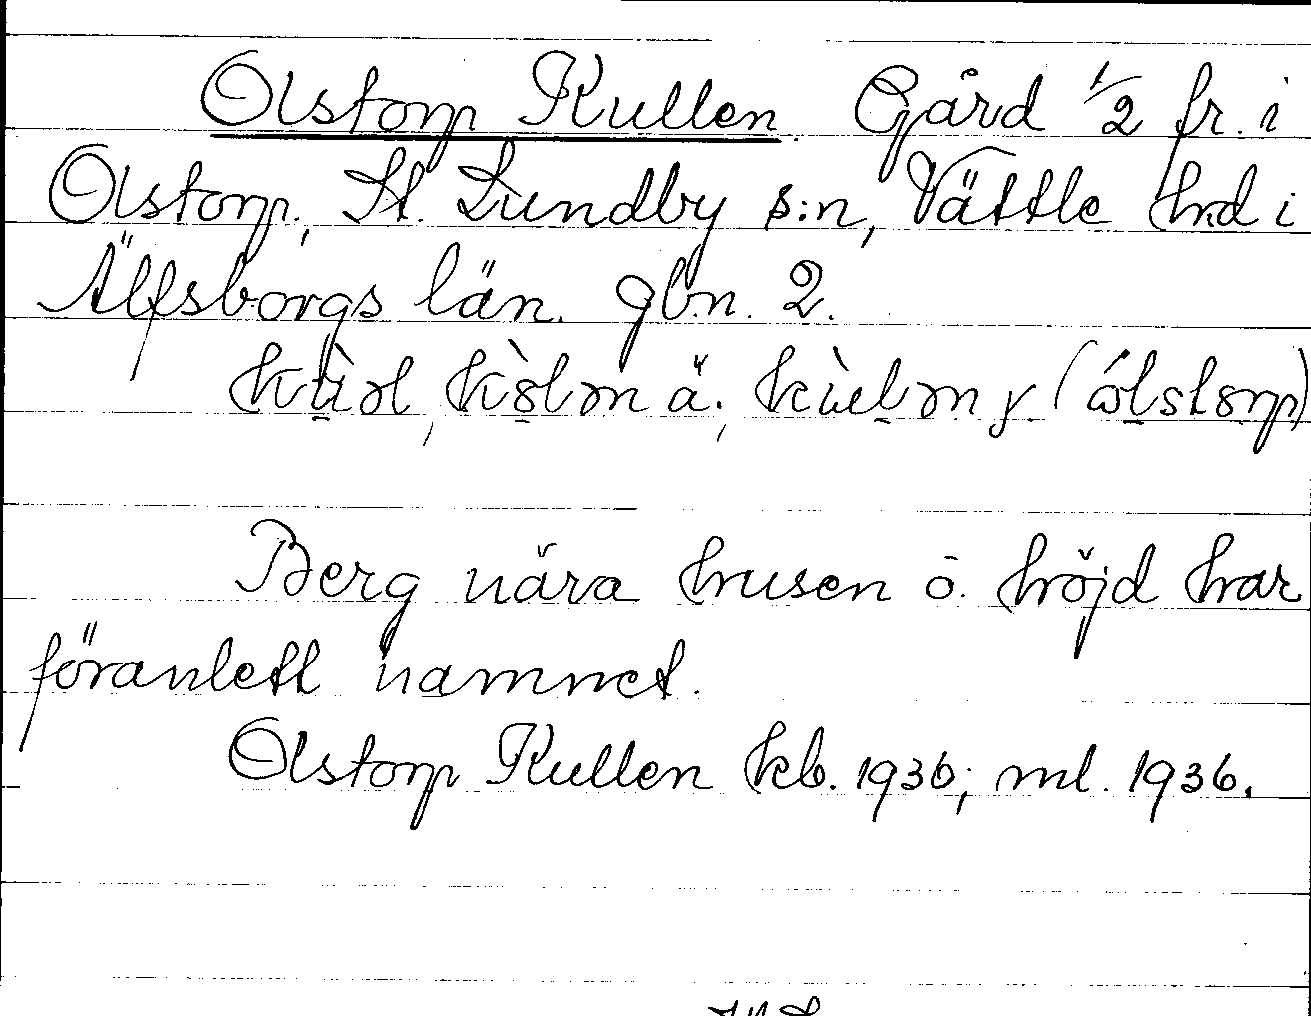 Olstorp Kullen. Gård 1/2 fr. i
Olstorp, St. Lundby s:n, Vättle hrd i
Älfsborgs län. gbn. 2.
ä; (ólstorp)
Berg nära husen o. höjd har
föranlett namnet.
Olstorp Kullen kb. 1936; ml. 1936.